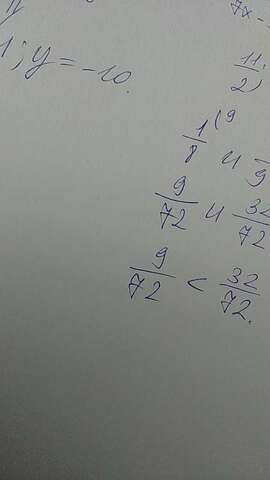 7x -
1; y = -10.
11
2)
1/8 (9 и /9
9/72 и 32/72
9/72 < 32/72.